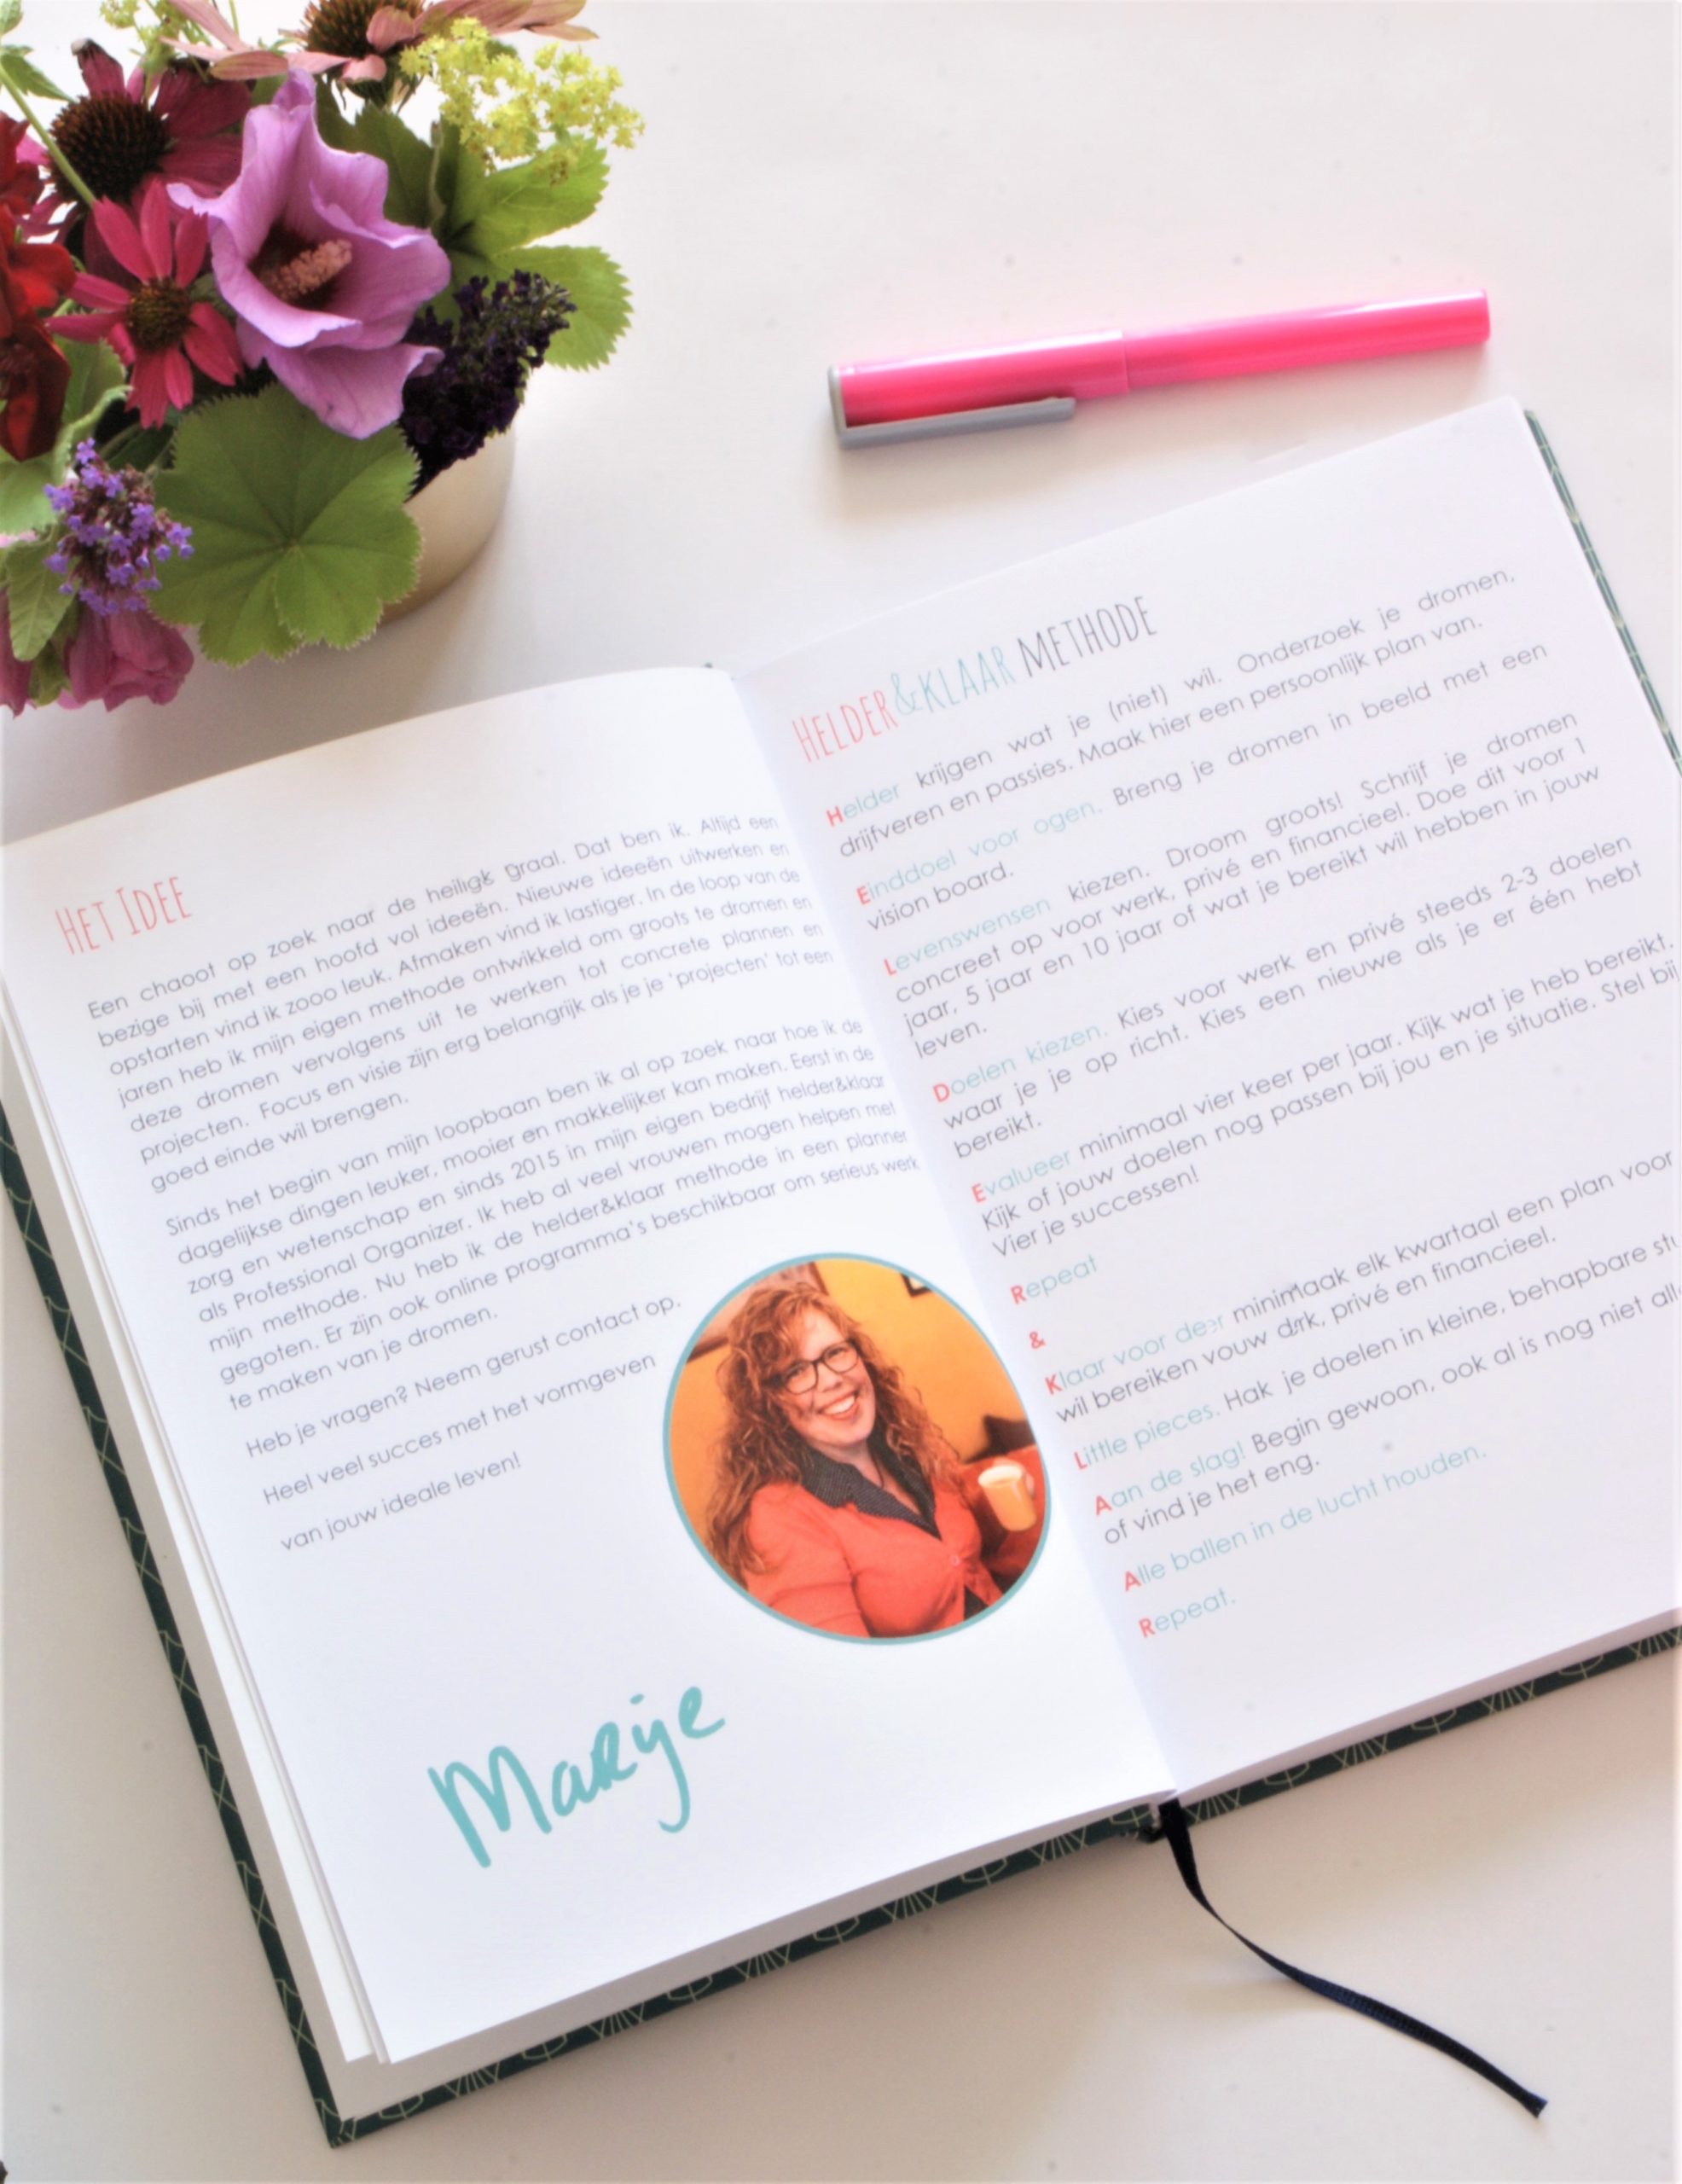 HET IDEE
Een chaoot op zoek naar de heilige graal. Dat ben ik. Altijd een
bezige bij met een hoofd vol ideeën. Nieuwe ideeën uitwerken en
opstarten vind ik zooo leuk. Afmaken vind ik lastiger. In de loop van de
jaren heb ik mijn eigen methode ontwikkeld om groots te dromen en
deze dromen vervolgens uit te werken tot concrete plannen en
projecten. Focus en visie zijn erg belangrijk als je je 'projecten' tot een
goed einde wil brengen.
Sinds het begin van mijn loopbaan ben ik al op zoek naar hoe ik de
dagelijkse dingen leuker, mooier en makkelijker kan maken. Eerst in de
zorg en wetenschap en sinds 2015 in mijn eigen bedrijf helder&klaar
als Professional Organizer. Ik heb al veel vrouwen mogen helpen met
mijn methode. Nu heb ik de helder&klaar methode in een planner
gegoten. Er zijn ook online programma's beschikbaar om serieus werk
te maken van je dromen.
Heb je vragen? Neem gerust contact op.
Heel veel succes met het vormgeven
van jouw ideale leven!
Marije
HELDER&KLAAR METHODE
Helder krijgen wat je (niet) wil. Onderzoek je dromen,
drijfveren en passies. Maak hier een persoonlijk plan van.
Einddoel voor ogen. Breng je dromen in beeld met een
vision board.
Levenswensen kiezen. Droom groots! Schrijf je dromen
concreet op voor werk, privé en financieel. Doe dit voor 1
jaar, 5 jaar en 10 jaar of wat je bereikt wil hebben in jouw
leven.
Doelen kiezen. Kies voor werk en privé steeds 2-3 doelen
waar je je op richt. Kies een nieuwe als je er één hebt
bereikt.
Evalueer minimaal vier keer per jaar. Kijk wat je heb bereikt.
Kijk of jouw doelen nog passen bij jou en je situatie. Stel bij
Vier je successen!
Repeat
&
Klaar voor maak elk kwartaal een plan voor
wil bereiken privé en financieel.
Little pieces. Hak je doelen in kleine, behapbare
Aan de slag! Begin gewoon, ook al is nog niet
of vind je het eng.
Alle ballen in de lucht houden.
Repeat.